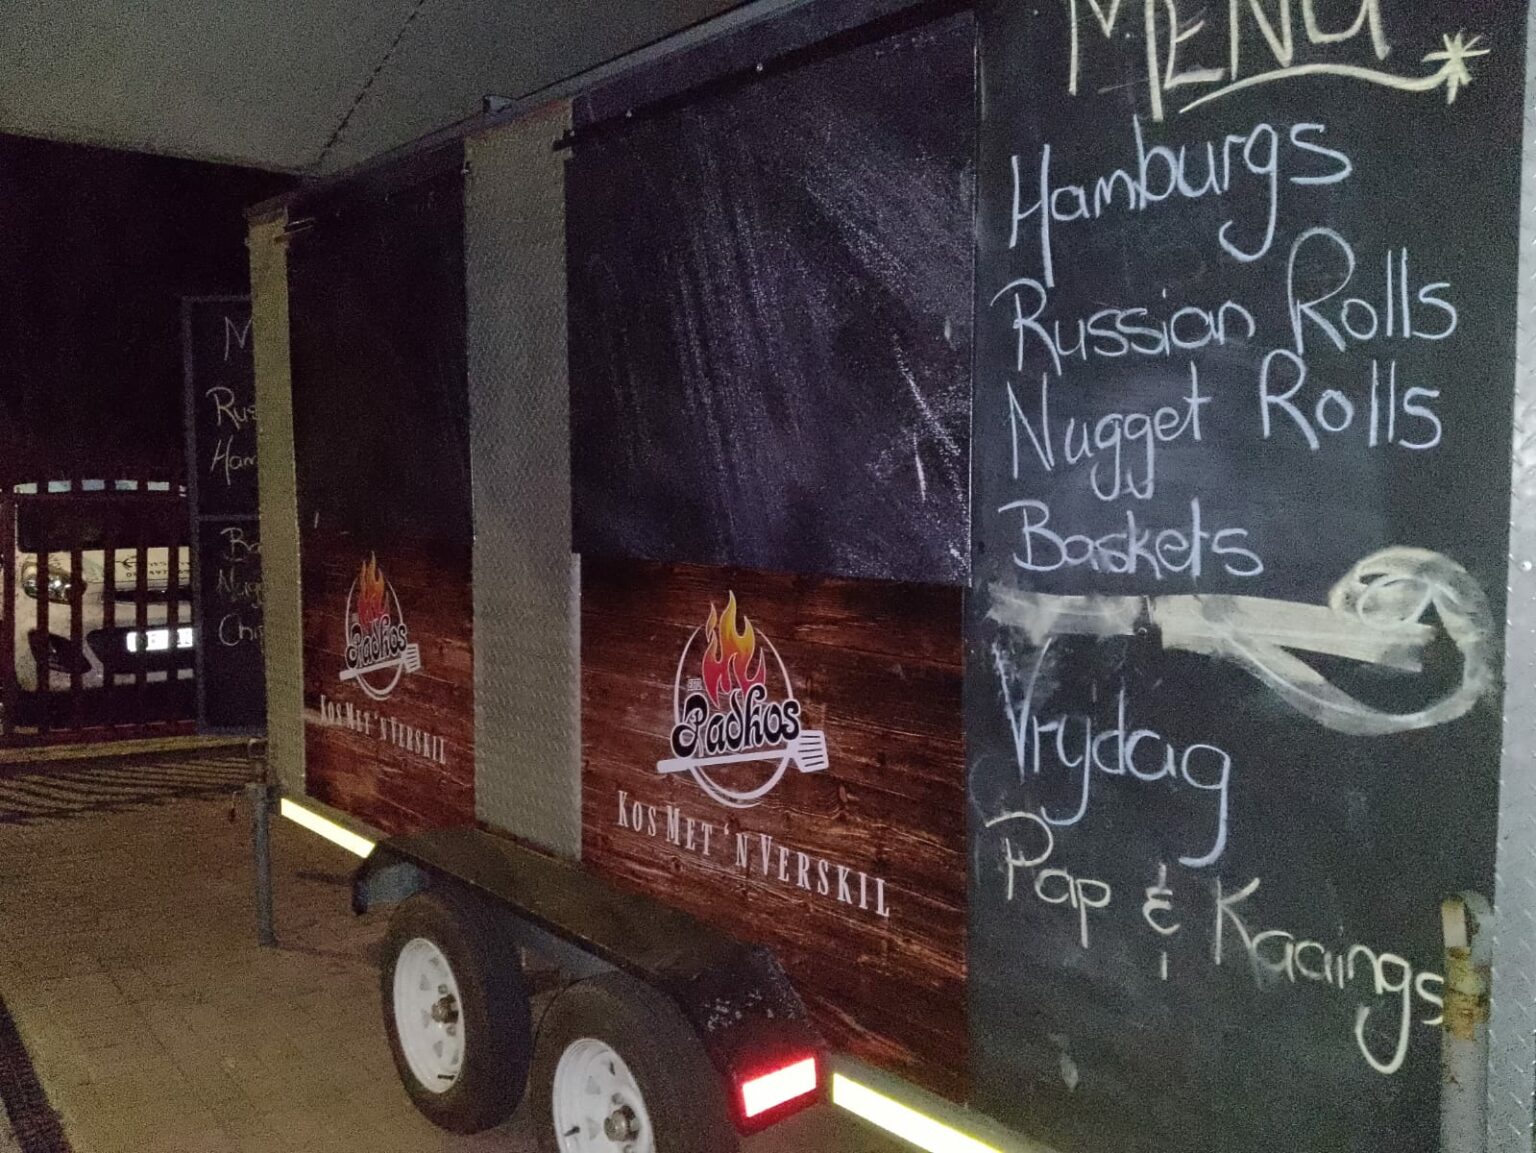 MENU
Hamburgs
Russian Rolls
Nugget Rolls
Baskets
Vrydag
Pap & Kaaiings
Padkos
KOS MET 'N VERSKIL
Padkos
KOS MET 'N VERSKIL
M
Rus
Ham
Ba
Nug
Chi